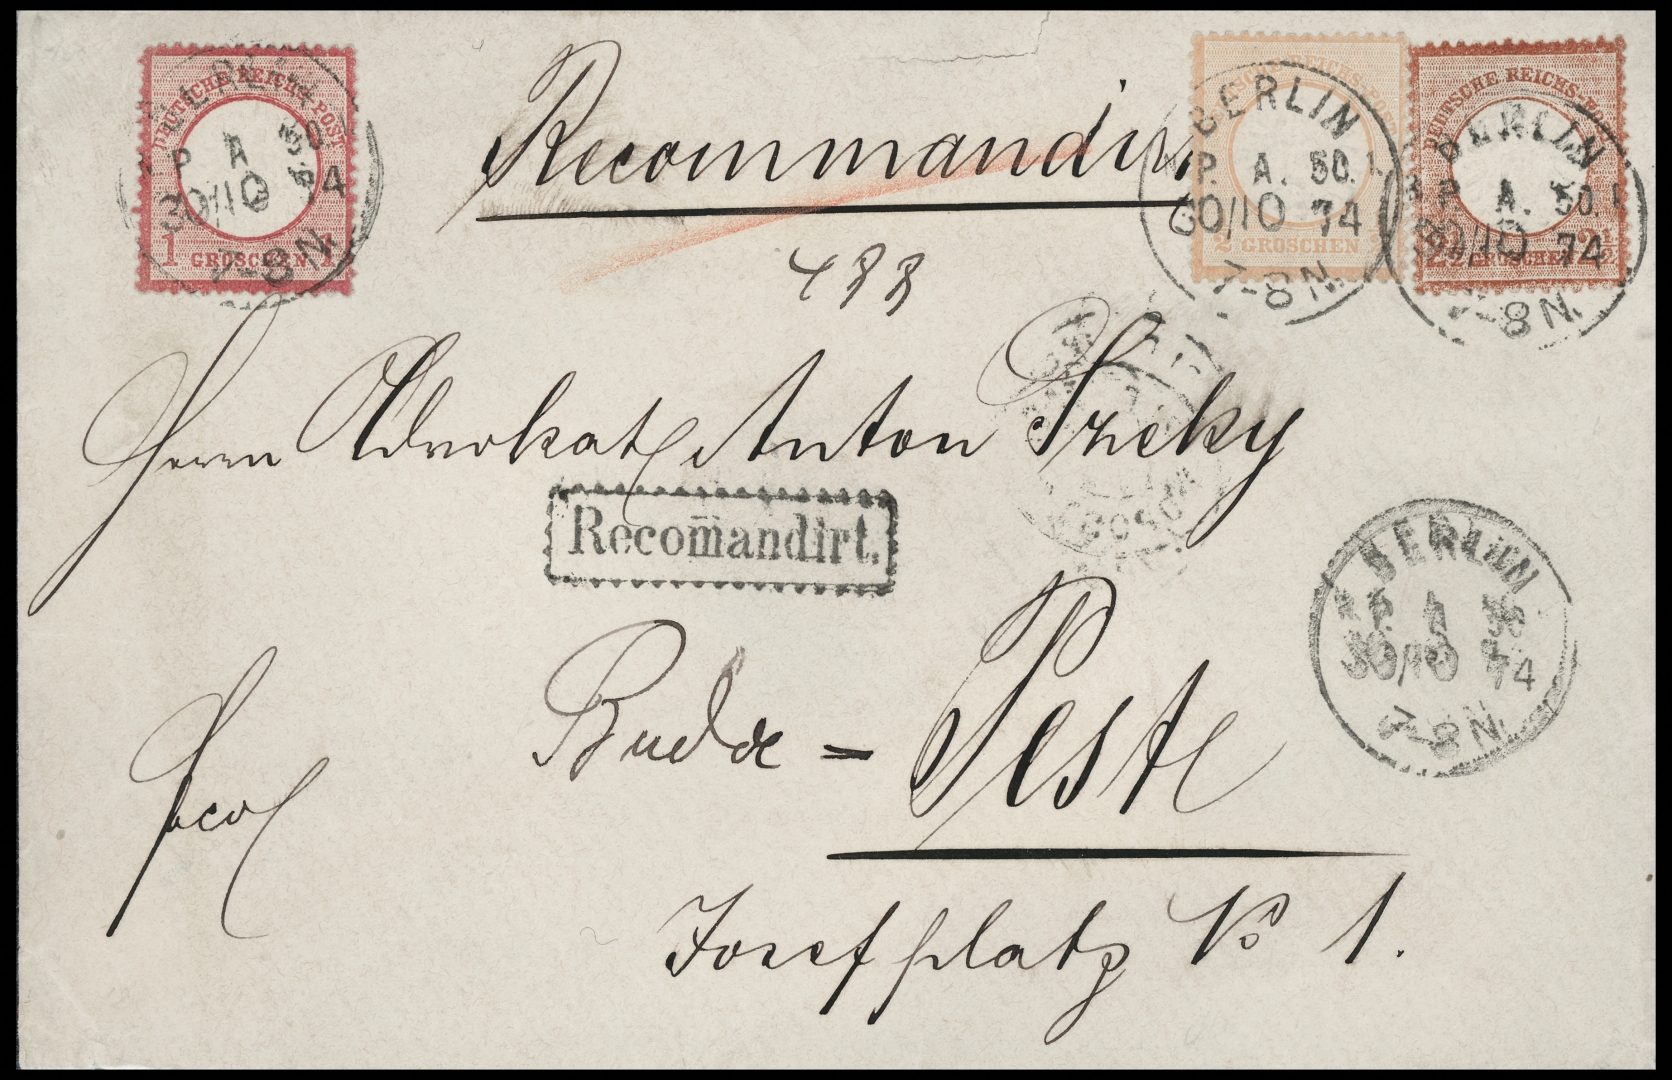 DEUTSCHE REICHS-POST
1 GROSCHEN 1
BERLIN
P. A. 50.
30/10 74
7-8 N.
Recommandirt
DEUTSCHE REICHS-POST
2 GROSCHEN 2
BERLIN
P. A. 50.
30/10 74
7-8 N.
DEUTSCHE REICHS-POST
2½ GROSCHEN 2½
BERLIN
P. A. 50.
30/10 74
7-8 N.
488
Herrn Advokat Anton
Recom̄andirt.
BERLIN
P. A. 50
30/10 74
7-8 N.
Buda = Peste
fco
Josefplatz No 1.